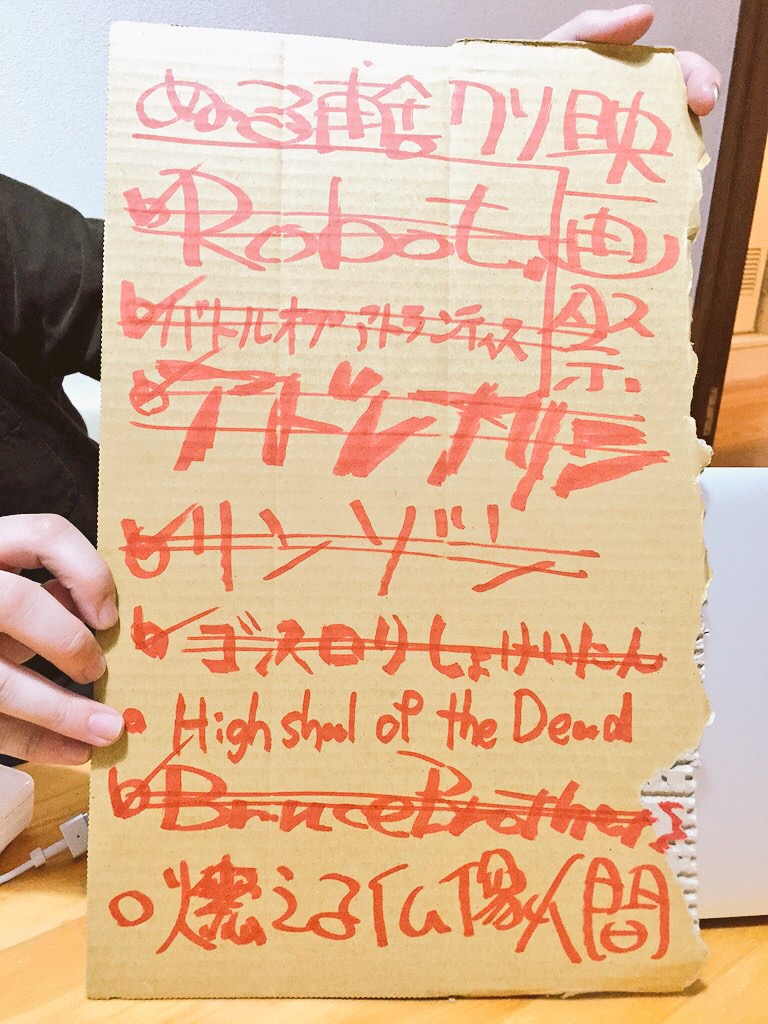 ぬる クソ映画祭
Robot.
バトルオブアトランティス
アドレナリン
サンゾン
ゴスロリしょけいたん
High shool of the Dead
Bruce Brothers
燃える仏像人間